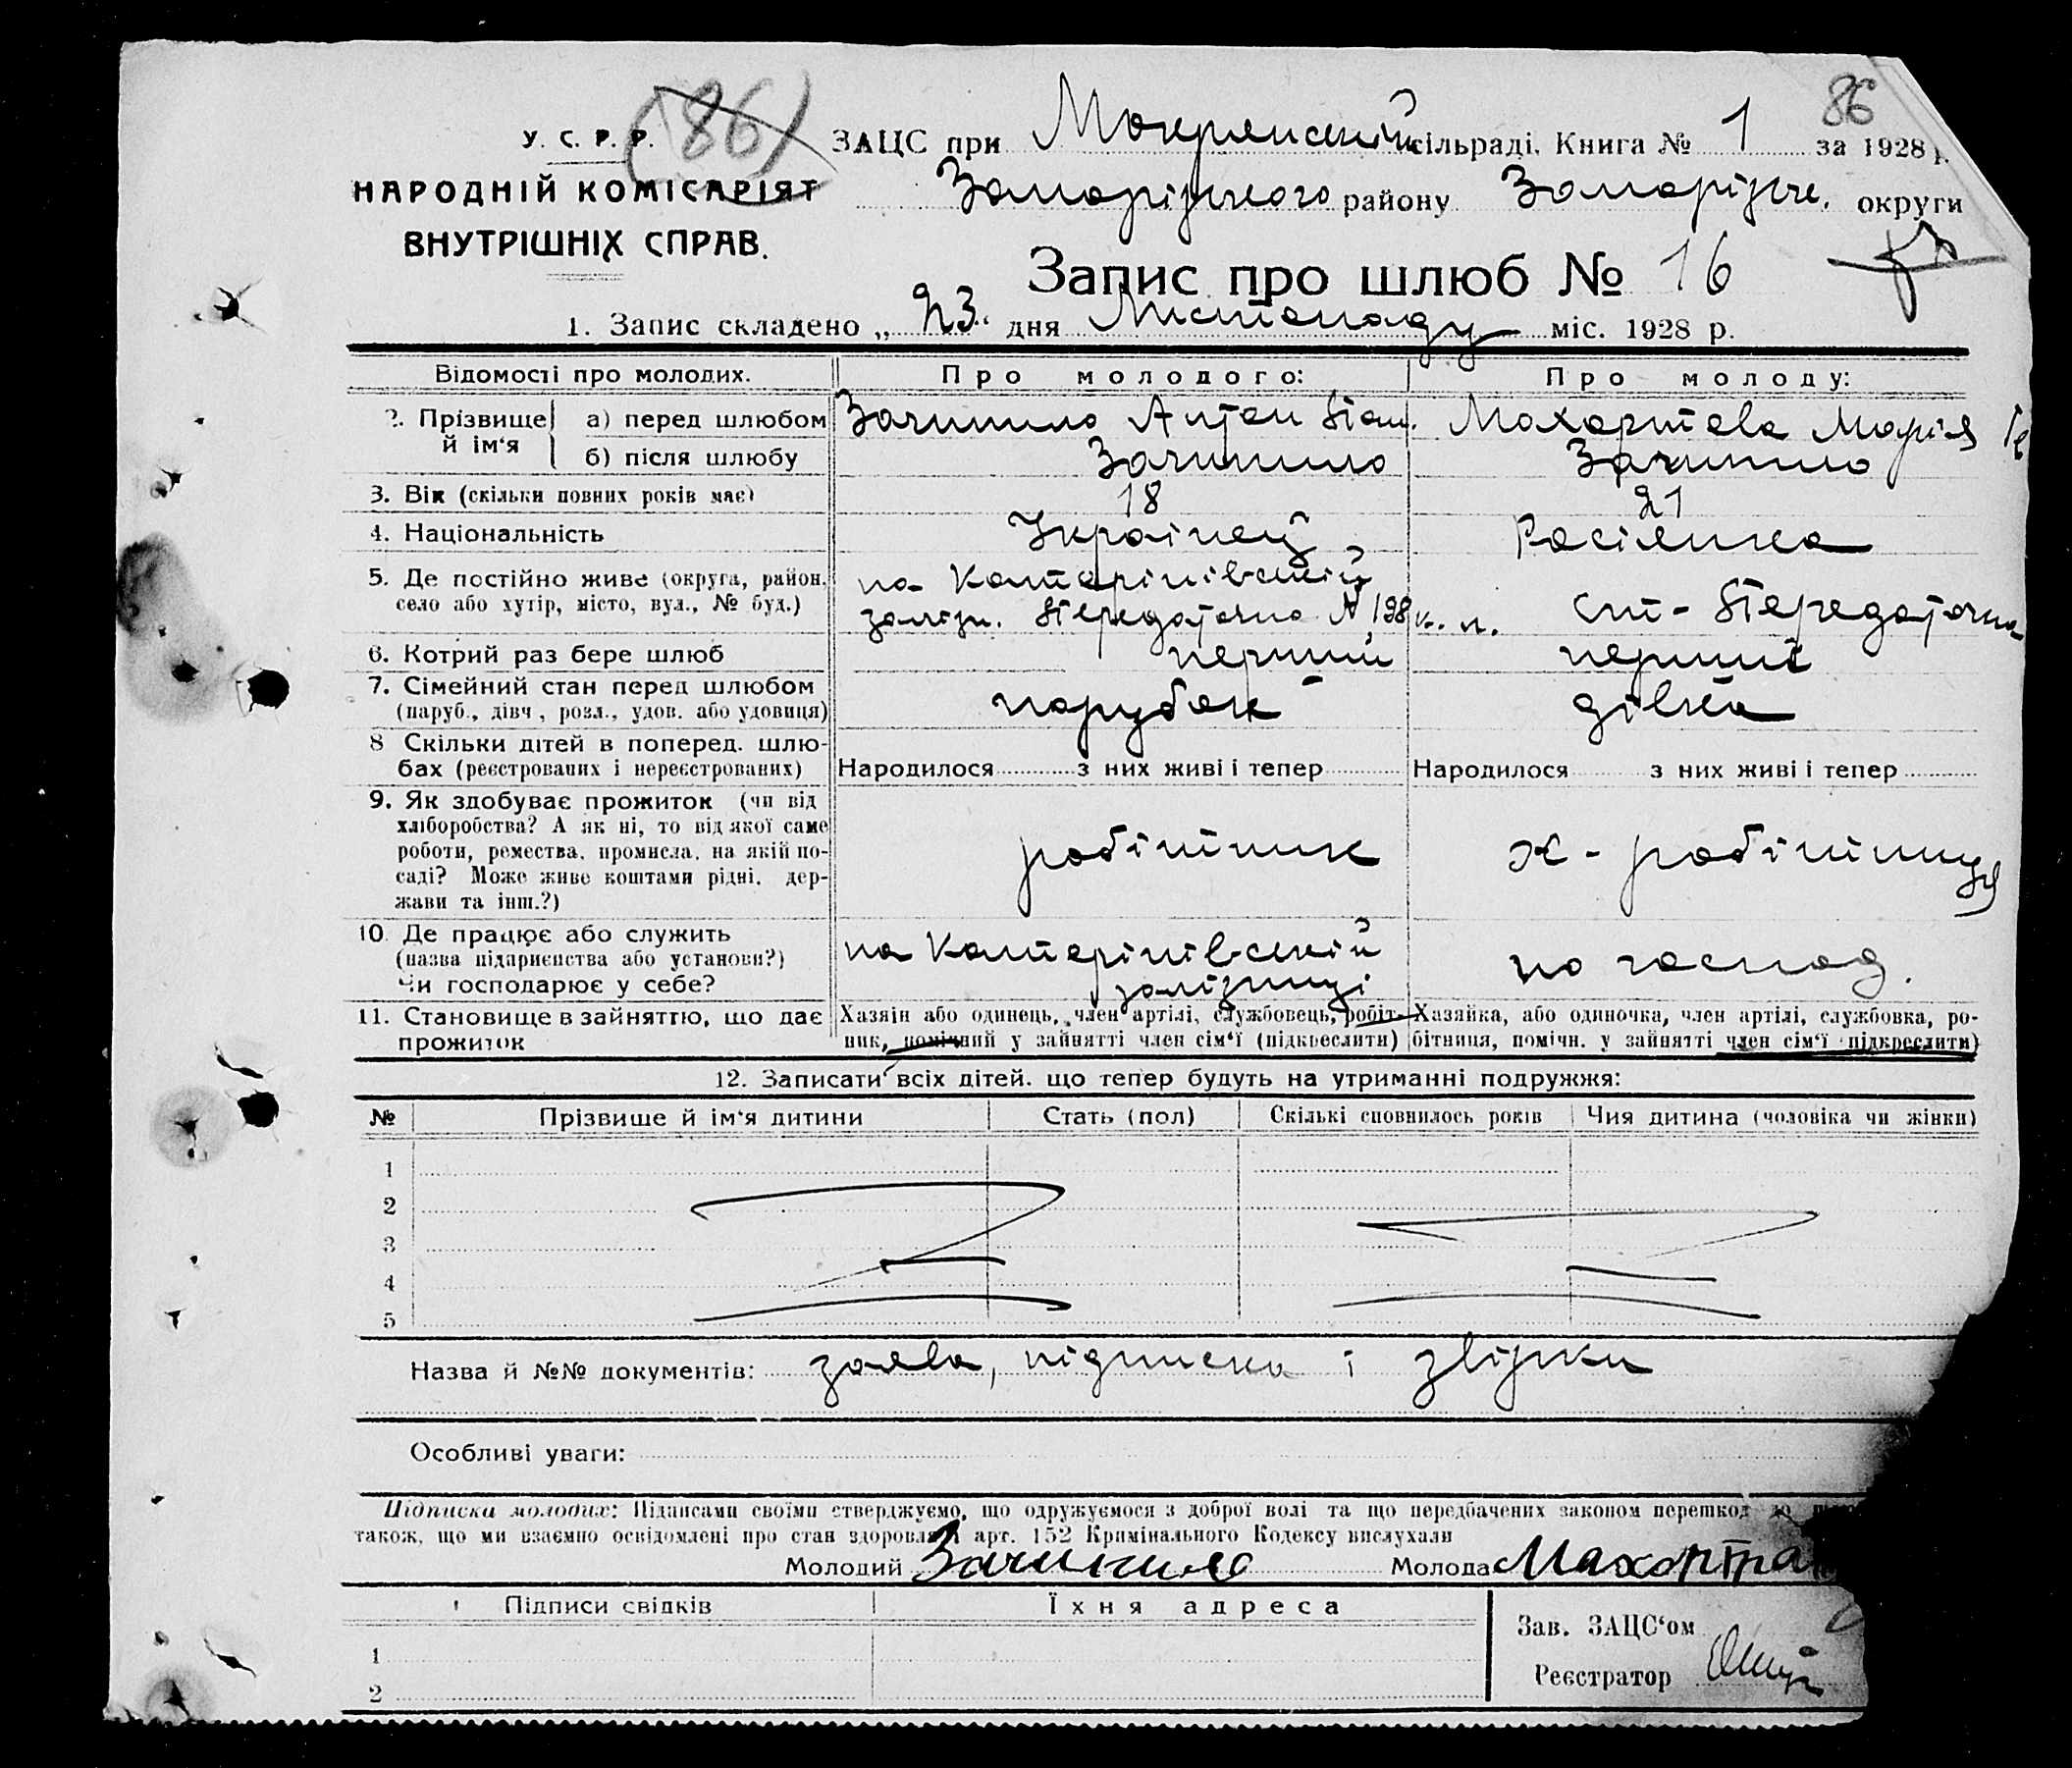 (86) 86
У. С. Р. Р. ЗАЦС при Мокрянській сільраді, Книга № 1 за 1928 р.
НАРОДНІЙ КОМІСАРІЯТ Запорізького району Запорізьк. округи
ВНУТРІШНІХ СПРАВ.
Запис про шлюб № 16
1. Запис складено „23“ дня Листопаду міс. 1928 р.
Відомості про молодих. Про молодого: Про молоду:
2. Прізвище й ім‘я а) перед шлюбом Зачипило Антон Пав. Махортова Марія
б) після шлюбу Зачипило Зачипило
3. Вік (скільки повних років має) 18 21
4. Національність Українец Росіянка
5. Де постійно живе (округа, район, на Катерінівській
село або хутір, місто, вул., № буд.) залізн. Передаточна № 198 к. п. ст- Передаточна
6. Котрий раз бере шлюб перший перший
7. Сімейний стан перед шлюбом парубок дівка
(паруб., дівч., розл., удов. або удовиця)
8 Скільки дітей в поперед. шлю-
бах (реєстрованих і нереєстрованих) Народилося з них живі і тепер Народилося з них живі і тепер
9. Як здобуває прожиток (чи від
хліборобства? А як ні, то від якої саме
роботи, ремества, промисла, на якій по- робітник х- робітниця
саді? Може живе коштами рідні, дер-
жави та інш.?)
10. Де працює або служить на Катерінівській
(назва підприємства або установи?) по господ.
Чи господарює у себе? залізниці
11. Становище в зайняттю, що дає Хазяїн або одинець, член артілі, службовець, робіт- Хазяйка, або одиночка, член артілі, службовка, ро-
прожиток ник, помічний у зайнятті член сім‘ї (підкреслити) бітниця, помічн. у зайнятті член сім‘ї підкреслити)
12. Записати всіх дітей, що тепер будуть на утриманні подружжя:
№ Прізвище й ім‘я дитини Стать (пол) Скількі сповнилось років Чия дитина (чоловіка чи жінки)
1
2
3
4
5
Назва й №№ документів: заява, підписка і звірки
Особливі уваги:
Підписка молодих: Підписами своїми стверджуємо, що одружуємося з доброї волі та що передбачених законом перешкод до
також, що ми взаємно освідомлені про стан здоровля і арт. 152 Кримінального Кодексу вислухали
Молодий Зачипило Молода Махортова
Підписи свідків Їхня адреса
Зав. ЗАЦС‘ом
1
Реєстратор
2